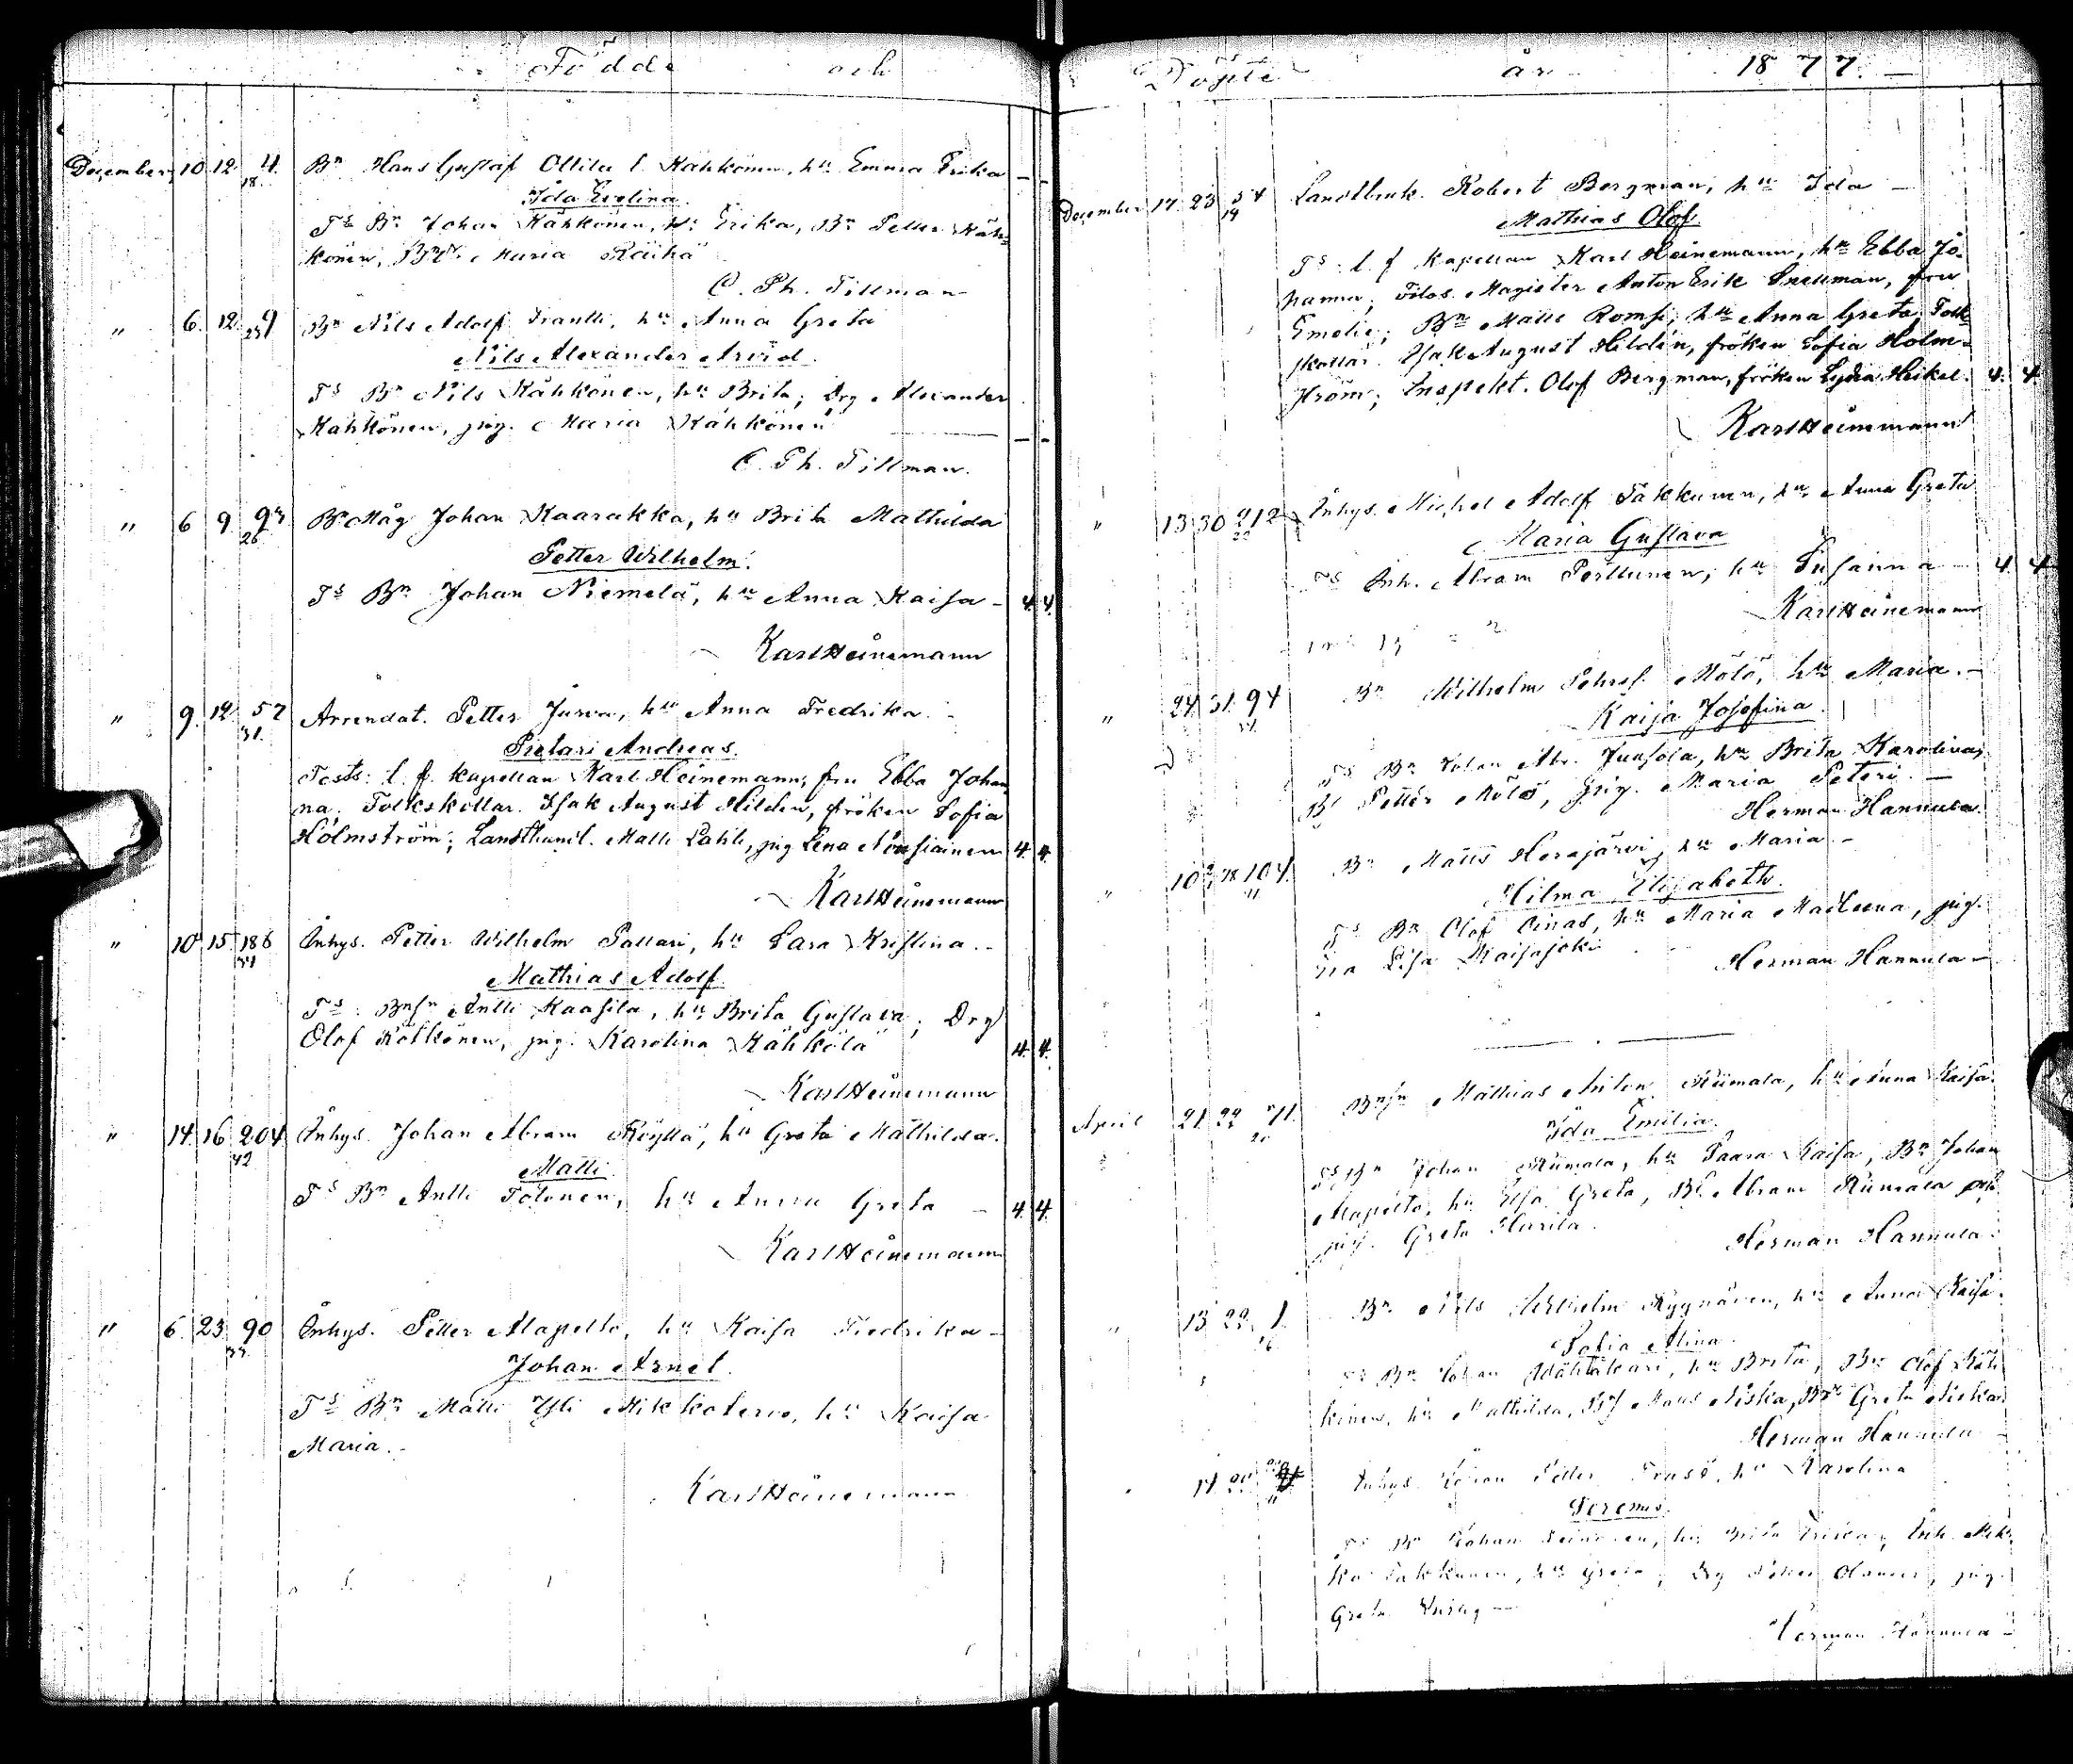 Födde och
December 10 12 4 Bn Hans Gustaf Ollila l. Kähkönen, hu Emma Erika
18
Ida Evelina
Ts Bn Johan Kähkönen, hu Erika, Bn Petter Käh-
könen, Maria Räihä
C. Ph. Tillman
" 6. 12. Bn Nils Adolf Frantti, hu Anna Greta
Nils Alexander Arvid.
Ts Bn Nils Kähkönen, hu Brita; Drg Alexander
Kähkönen, pig. Maria Kähkönen
C. Ph. Tillman.
" 6 9 Bn Måg Johan Kaarakka, hu Brita Mathilda
26
Petter Wilhelm.
Ts Bn Johan Niemelä, hu Anna Kaisa - 4 4.
Karl Heinemann
" 9. 12. 57 Arrendat. Petter Jurva, hu Anna Fredrika.
31.
Pietari Andreas.
Tests: t. f. kapellan Karl Heinemann, fru Ebba Johan
na; Folkskollär. Isak August Hildén, fröken Sofia
Holmström; Landthandl. Matti Lahti, pig Lena 4. 4.
Karl Heinemann
" 10 15 186 Inhys. Petter Wilhelm Pallari, hu Sara Kristina.
34
Mathias Adolf.
Ts: Bnsn Antti Kaasila, hu Brita Gustava; Drg
Olof Kötkönen, pig. Karolina Kähkölä 4. 4.
Karl Heinemann
" 14. 16 204 Inhys. Johan Abram Köyttä, hu Greta Mathilda.
42
Matti
Ts Bn Antti Tolonen, hu Anna Greta - 4. 4.
Karl Heinemann
" 6. 23. 90 Inhys. Petter Alapelto, hu Kaisa Fredrika -
Johan Arnel.
Ts Bn Matti Yli Mikkoterwo, hu Kaisa
Maria.
Karl Heinemann
Döpte år 1877.
December 17. 23 54 Landtbruk. Robert Bergman, hu Ida -
19
Mathias Olof
Ts: t. f. kapellan Karl Heinemann, hu Ebba Jo-
hanna; Filos. Magister Anton Erik Snellman, fru
Emelie; Bn Matti Romsi, hu Anna Greta; Folk-
skollär. Isak August Hildén, fröken Sofia Holm-
ström; Inspekt. Olof Bergman, fröken Lydia Heikel. 4. 4
Karl Heinemann
" 13 30 212 Inhys. Michel Adolf Takkunen, hu Anna Greta
Maria Gustava
Ts Inh. Abram Perttunen, hu Susanna - 4. 4
Karl Heinemann
" 24. 31. 94 Bn Wilhelm Mölö, hu Maria. -
Kaisa Josefina.
Ts Bn Johan Abr. Juusola, hu Brita Karolina;
Petter Mölö, pig. Maria Peteri. -
Herman Hannula.
" 10 104. Bn Matts Herajärvi, hu Maria -
Hilma Elisabeth.
Ts Bn Olof Oinas, hu Maria Madleena, pig.
Lisa Kaisajoki
Herman Hannula -
April 21. 22 71. Bnsn Mathias Anton Kiimala, hu Anna Kaisa.
20
Ida Emilia.
Ts Bn Johan Kiimala, hu Saara Kaisa, Bn Johan
Alapelto, hu Greta, Abram Kiimala och
pig. Greta Harila.
Herman Hannula.
" 13 22. 1. Bn Nils Wilhelm hu Anna Kaisa.
16
Sofia Alina.
Ts Bn Johan hu Brita, Bn Olof Käh
könen, hu Mathilda, Hans Niska, Greta Niska
Herman Hannula -
17 Inhys. Johan Petter hu Karolina
Ts Bn Johan
hu Greta; Drg
Greta
Herman Hannula -